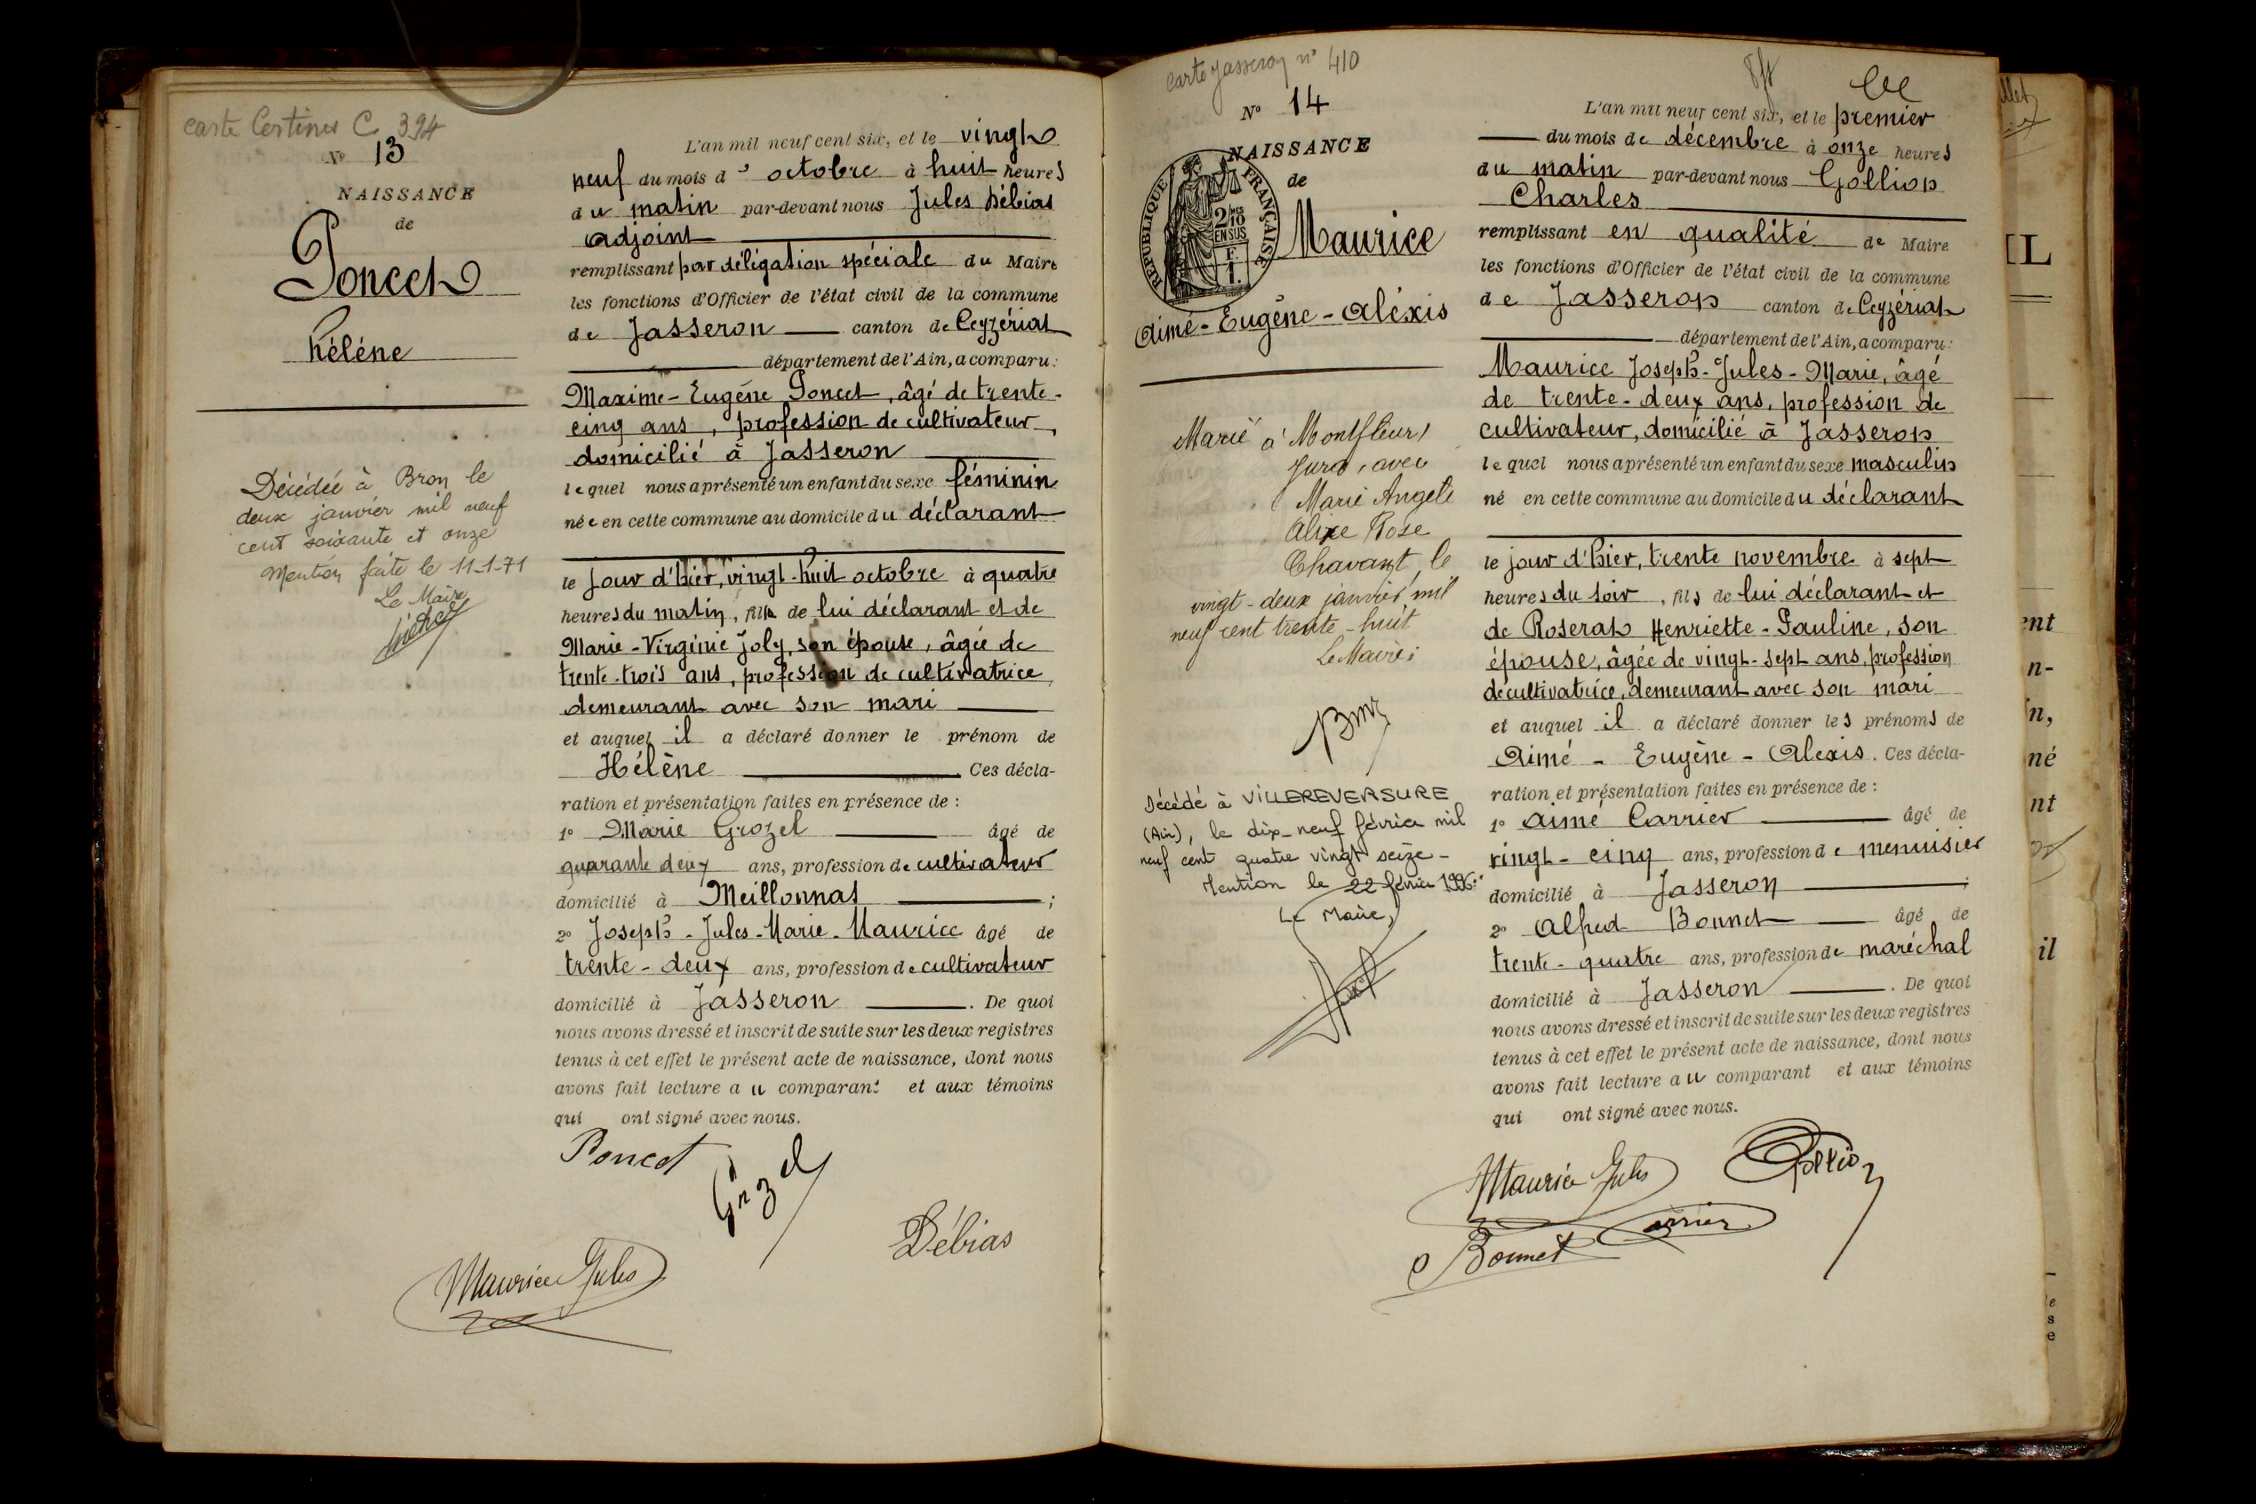 carte Certines C 394
No 13
NAISSANCE
de
Poncet
Hélène
Décédée à Bron le
deux janvier mil neuf
cent soixante et onze
Mention faite le 11-1-71
Le Maire
L'an mil neuf cent six, et le vingt
neuf du mois d'octobre à huit heures
du matin par-devant nous Jules Débias
adjoint
remplissant par délégation spéciale du Maire
les fonctions d'Officier de l'état civil de la commune
de Jasseron canton de Ceyzériat
département de l'Ain, a comparu:
Maxime-Eugène Poncet, âgé de trente-
cinq ans, profession de cultivateur,
domicilié à Jasseron
lequel nous a présenté un enfant du sexe féminin
née en cette commune au domicile du déclarant
le jour d'hier, vingt-huit octobre à quatre
heures du matin, fille de lui déclarant et de
Marie-Virginie Joly, son épouse, âgée de
trente-trois ans, profession de cultivatrice,
demeurant avec son mari
et auquel il a déclaré donner le prénom de
Hélène Ces décla-
ration et présentation faites en présence de :
1o Marie Grozel âgé de
quarante deux ans, profession de cultivateur
domicilié à Meillonnas ;
2o Joseph-Jules-Marie-Maurice âgé de
trente-deux ans, profession de cultivateur
domicilié à Jasseron . De quoi
nous avons dressé et inscrit de suite sur les deux registres
tenus à cet effet le présent acte de naissance, dont nous
avons fait lecture au comparant et aux témoins
qui ont signé avec nous.
Poncet
Grozel
Débias
Maurice Jules
Carte Jasseron no 410
No 14
NAISSANCE
de
RÉPUBLIQUE FRANÇAISE
2/10 EN SUS
Maurice
Aimé-Eugène-Aléxis
Marié à Montfleur,
Jura, avec
Marie Angèle
Alixe Rose
Chavant, le
vingt-deux janvier mil
neuf cent trente-huit
Le Maire:
Décédé à VILLEREVERSURE
(Ain), le dix-neuf février mil
neuf cent quatre vingt seize -
Mention le 22 février 1996.
Le Maire,
L'an mil neuf cent six, et le premier
du mois de décembre à onze heures
du matin par-devant nous Gollion
Charles
remplissant en qualité de Maire
les fonctions d'Officier de l'état civil de la commune
de Jasseron canton de Ceyzériat
département de l'Ain, a comparu:
Maurice Joseph-Jules-Marie, âgé
de trente-deux ans, profession de
cultivateur, domicilié à Jasseron
lequel nous a présenté un enfant du sexe masculin
né en cette commune au domicile du déclarant
le jour d'hier, trente novembre à sept
heures du soir, fils de lui déclarant et
de Roserat Henriette-Pauline, son
épouse, âgée de vingt-sept ans, profession
de cultivatrice, demeurant avec son mari
et auquel il a déclaré donner les prénoms de
Aimé - Eugène - Alexis. Ces décla-
ration et présentation faites en présence de :
1o Aimé Carrier âgé de
vingt-cinq ans, profession de menuisier
domicilié à Jasseron ;
2o Alfred Bonnet âgé de
trente-quatre ans, profession de maréchal
domicilié à Jasseron . De quoi
nous avons dressé et inscrit de suite sur les deux registres
tenus à cet effet le présent acte de naissance, dont nous
avons fait lecture au comparant et aux témoins
qui ont signé avec nous.
Maurice Jules
Gollion
Carrier
Bonnet